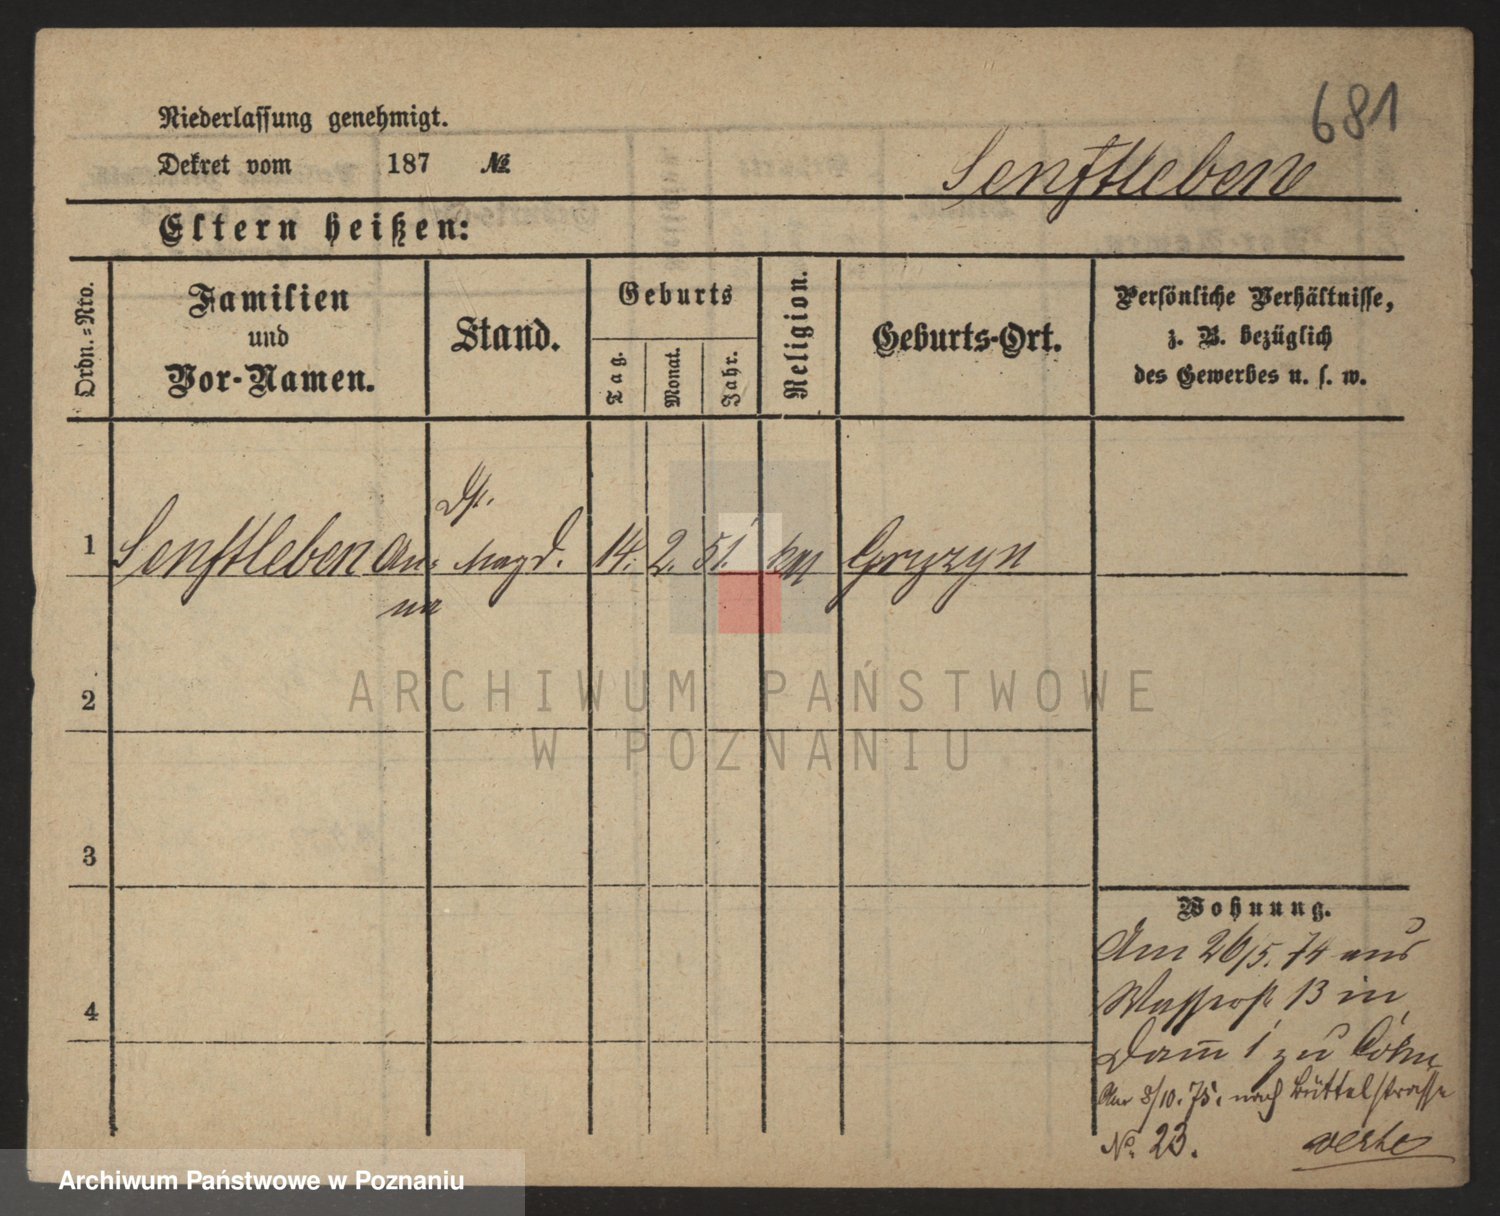 681
Niederlassung genehmigt.
Dekret vom 187 №
Senftleben
Eltern heißen:
Ordn.=Nro.
Familien
und
Vor-Namen.
Stand.
Geburts
Tag.
Monat.
Jahr.
Religion.
Geburts-Ort.
Persönliche Verhältnisse,
z. B. bezüglich
des Gewerbes u. s. w.
1 Senftleben An= Magd. 14. 2. 51. Gryzyn
na
2
3
4
Wohnung.
Am 26/5. 74 aus
Wasserstr 13 in
Dam̅ 1 zu
Am 8/10. 75. nach Büttelstrasse
No. 23.
ARCHIWUM PAŃSTWOWE
W POZNANIU
Archiwum Państwowe w Poznaniu